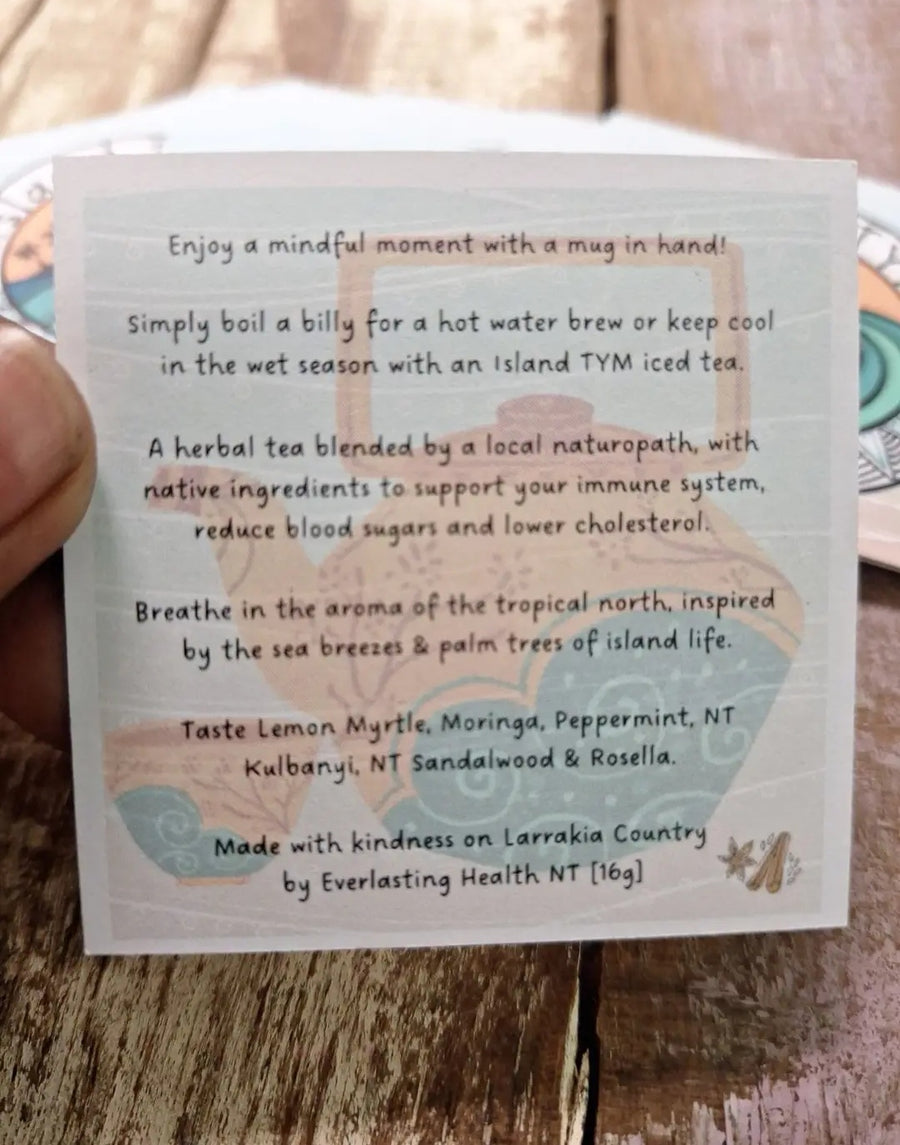 Enjoy a mindful moment with a mug in hand!
Simply boil a billy for a hot water brew or keep cool
in the wet season with an Island TYM iced tea.
A herbal tea blended by a local naturopath, with
native ingredients to support your immune system,
reduce blood sugars and lower cholesterol.
Breathe in the aroma of the tropical north, inspired
by the sea breezes & palm trees of island life.
Taste Lemon Myrtle, Moringa, Peppermint, NT
Kulbanyi, NT Sandalwood & Rosella.
Made with kindness on Larrakia Country
by Everlasting Health NT [16g]